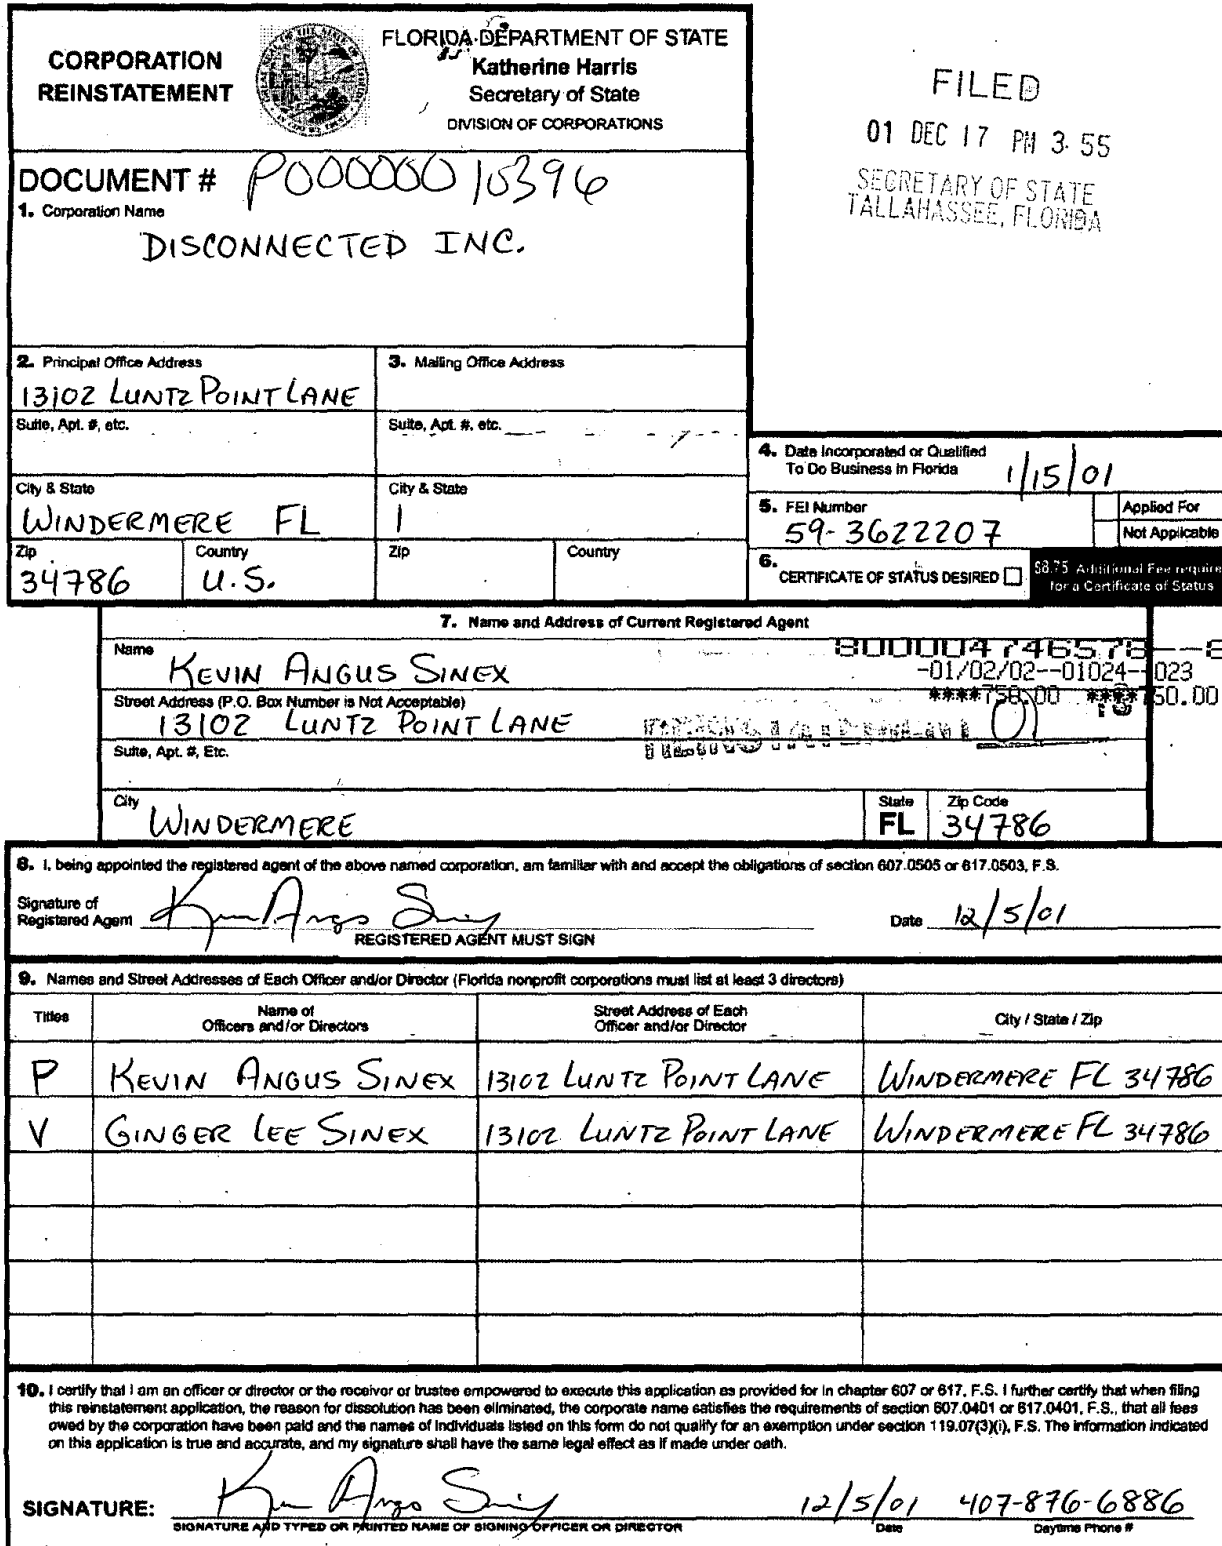 CORPORATION
REINSTATEMENT
FLORIDA DEPARTMENT OF STATE
Katherine Harris
Secretary of State
DIVISION OF CORPORATIONS
FILED
01 DEC 17 PM 3:55
SECRETARY OF STATE
TALLAHASSEE, FLORIDA
DOCUMENT # P00000010396
1. Corporation Name
DISCONNECTED INC.
2. Principal Office Address
13102 LUNTZ POINT LANE
3. Mailing Office Address
Suite, Apt. #, etc.
Suite, Apt. #, etc.
City & State
WINDERMERE FL
City & State
Zip
34786
Country
U.S.
Zip
Country
4. Date Incorporated or Qualified
To Do Business in Florida
1/15/01
5. FEI Number
59-3622207
Applied For
Not Applicable
6.
CERTIFICATE OF STATUS DESIRED
$8.75 Additional Fee require
for a Certificate of Status
7. Name and Address of Current Registered Agent
Name
KEVIN ANGUS SINEX
800004746578--8
-01/02/02--01024--023
****750.00 ****750.00
Street Address (P.O. Box Number is Not Acceptable)
13102 LUNTZ POINT LANE
REINSTATEMENT 01
Suite, Apt. #, Etc.
City
WINDERMERE
State
FL
Zip Code
34786
8. I, being appointed the registered agent of the above named corporation, am familiar with and accept the obligations of section 607.0505 or 617.0503, F.S.
Signature of
Registered Agent
REGISTERED AGENT MUST SIGN
Date 12/5/01
9. Names and Street Addresses of Each Officer and/or Director (Florida nonprofit corporations must list at least 3 directors)
Titles
Name of
Officers and/or Directors
Street Address of Each
Officer and/or Director
City / State / Zip
P KEVIN ANGUS SINEX 13102 LUNTZ POINT LANE WINDERMERE FL 34786
V GINGER LEE SINEX 13102 LUNTZ POINT LANE WINDERMERE FL 34786
10. I certify that I am an officer or director or the receiver or trustee empowered to execute this application as provided for in chapter 607 or 617, F.S. I further certify that when filing
this reinstatement application, the reason for dissolution has been eliminated, the corporate name satisfies the requirements of section 607.0401 or 617.0401, F.S., that all fees
owed by the corporation have been paid and the names of individuals listed on this form do not qualify for an exemption under section 119.07(3)(i), F.S. The information indicated
on this application is true and accurate, and my signature shall have the same legal effect as if made under oath.
SIGNATURE:
12/5/01 407-876-6886
SIGNATURE AND TYPED OR PRINTED NAME OF SIGNING OFFICER OR DIRECTOR
Date
Daytime Phone #